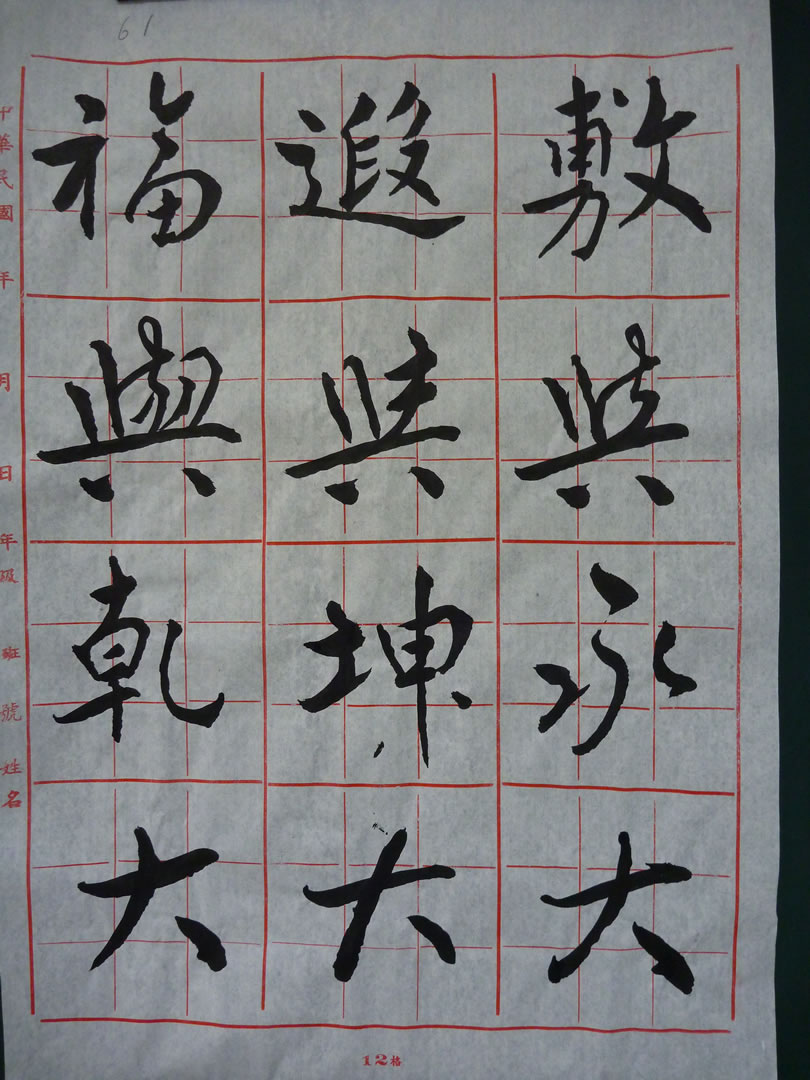 61
福遐敷
與與與
乾坤永
大大大
中華民國 年 月 日 年級 班 號 姓名
12格